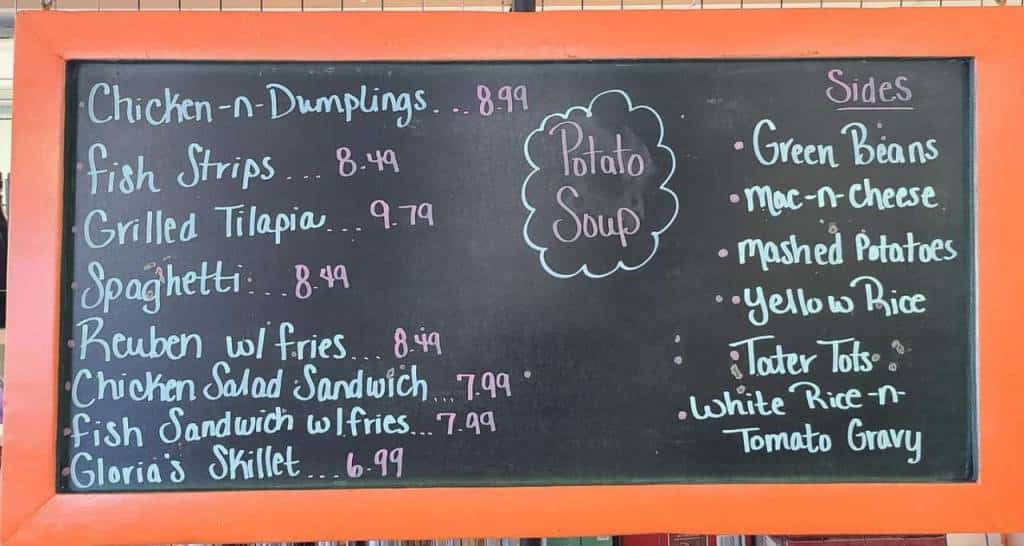 Chicken-n-Dumplings...8.99
fish Strips...8.49
Grilled Tilapia...9.79
Spaghetti...8.49
Reuben w/fries...8.49
Chicken Salad Sandwich...7.99
fish Sandwich w/fries...7.99
Gloria's Skillet...6.99
Potato
Soup
Sides
• Green Beans
• Mac-n-Cheese
• Mashed Potatoes
• Yellow Rice
• Tater Tots
• White Rice-n-
Tomato Gravy